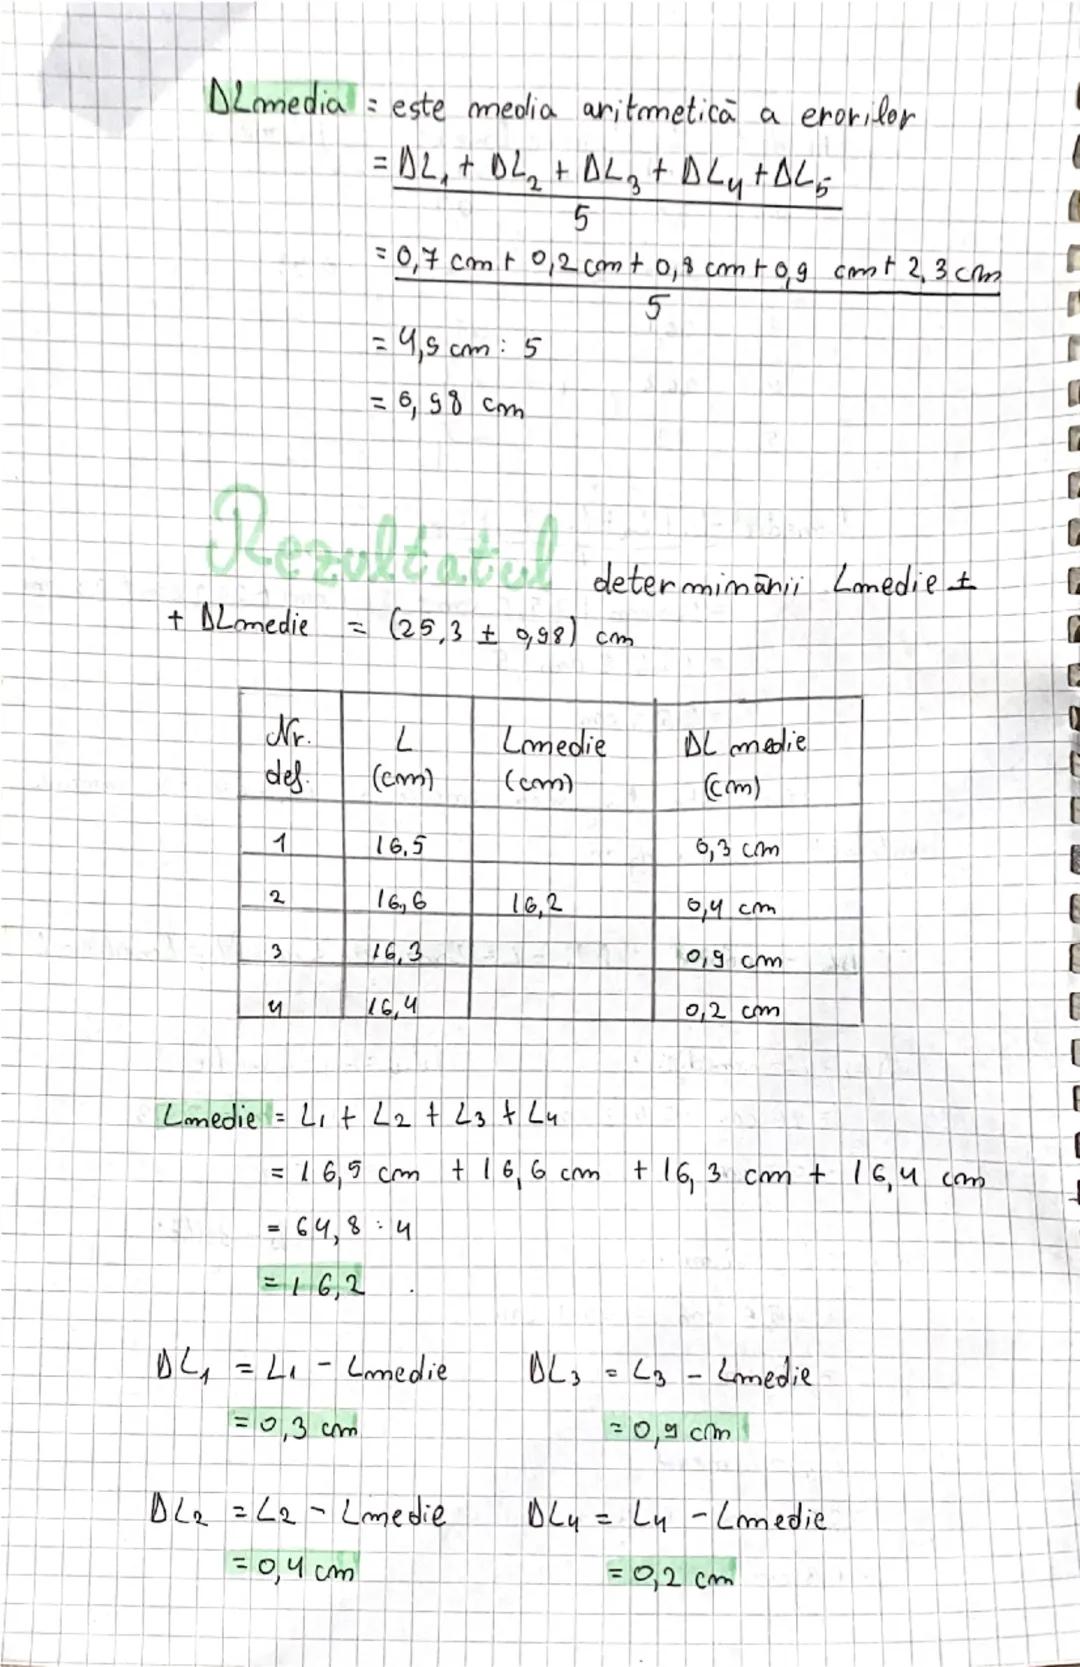 ΔLmedia = este media aritmetică a erorilor
= ΔL1 + ΔL2 + ΔL3 + ΔL4 + ΔL5
5
= 0,7 cm + 0,2 cm + 0,8 cm + 0,9 cm + 2,3 cm
5
= 4,9 cm : 5
= 0,98 cm
Rezultatul determinării Lmedie ±
+ ΔLmedie = (25,3 ± 0,98) cm
Nr. det. L (cm) Lmedie (cm) ΔL medie (cm)
1 16,5 0,3 cm
2 16,6 16,2 0,4 cm
3 16,3 0,9 cm
4 16,4 0,2 cm
Lmedie = L1 + L2 + L3 + L4
= 16,5 cm + 16,6 cm + 16,3 cm + 16,4 cm
= 64,8 : 4
= 16,2
ΔL1 = L1 - Lmedie ΔL3 = L3 - Lmedie
= 0,3 cm = 0,9 cm
ΔL2 = L2 - Lmedie ΔL4 = L4 - Lmedie
= 0,4 cm = 0,2 cm